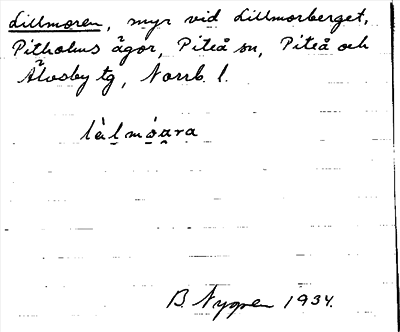 Lillmoren, myr vid Lillmorberget,
Pitholms ägor, Piteå sn, Piteå och
Älvsby tg, Norrb. l.
B. Nygren 1934.